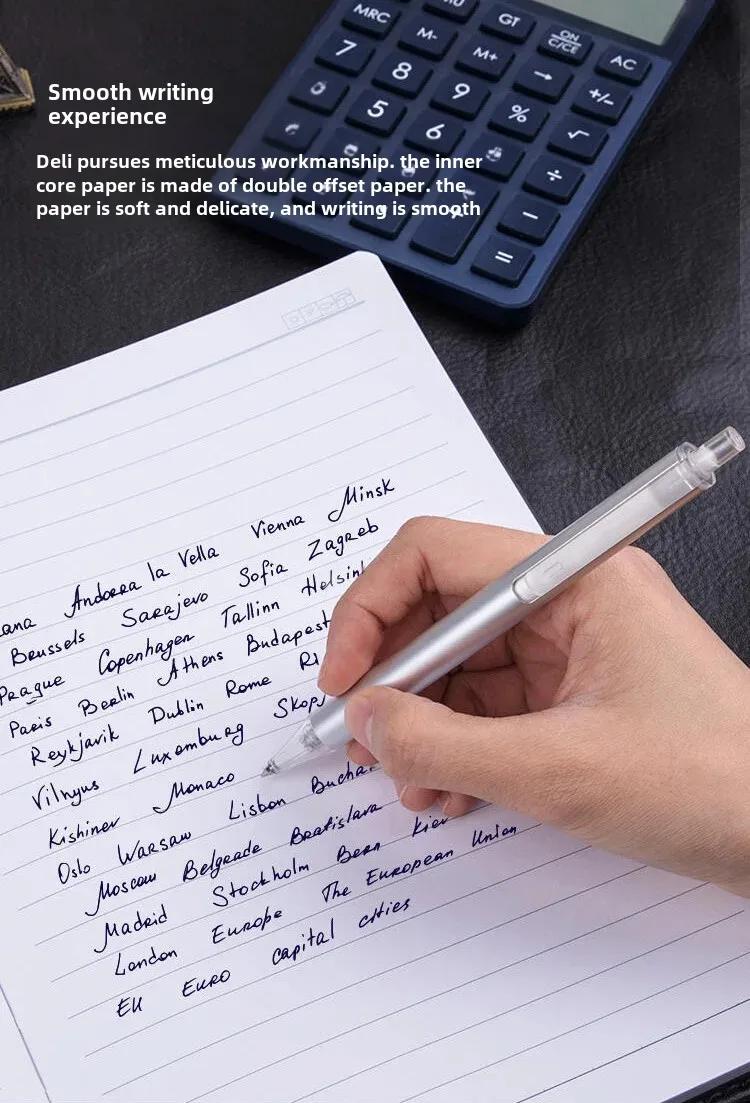 MRC MU GT ON C/CE AC
7 M- M+ → +/-
8 9 % √
5 6 ÷
−
=
Smooth writing
experience
Deli pursues meticulous workmanship. the inner
core paper is made of double offset paper. the
paper is soft and delicate, and writing is smooth
Andorra la Vella Vienna Minsk
Brussels Sarajevo Sofia Zagreb
Prague Copenhagen Tallinn Helsink
Paris Berlin Athens Budapest
Reykjavik Dublin Rome
Vilnyus Luxemburg Skopj
Kishinev Monaco
Oslo Warsaw Lisbon Buchar
Moscow Belgrade Bratislava
Madrid Stockholm Bern Kiev
London Europe The European Union
EU Euro capital cities